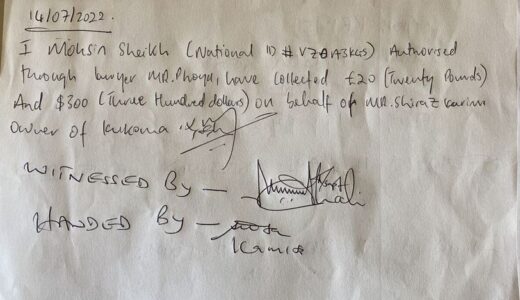 14/07/2022.
I Mohsin Sheikh (National ID # Authorised
through lawyer MR. Phoya, have collected £20 (Twenty Pounds)
And $300 (Three Hundred dollars) on behalf of MR. Shiraz Karim
Owner of Kukoma
WITNESSED By —
HANDED By —